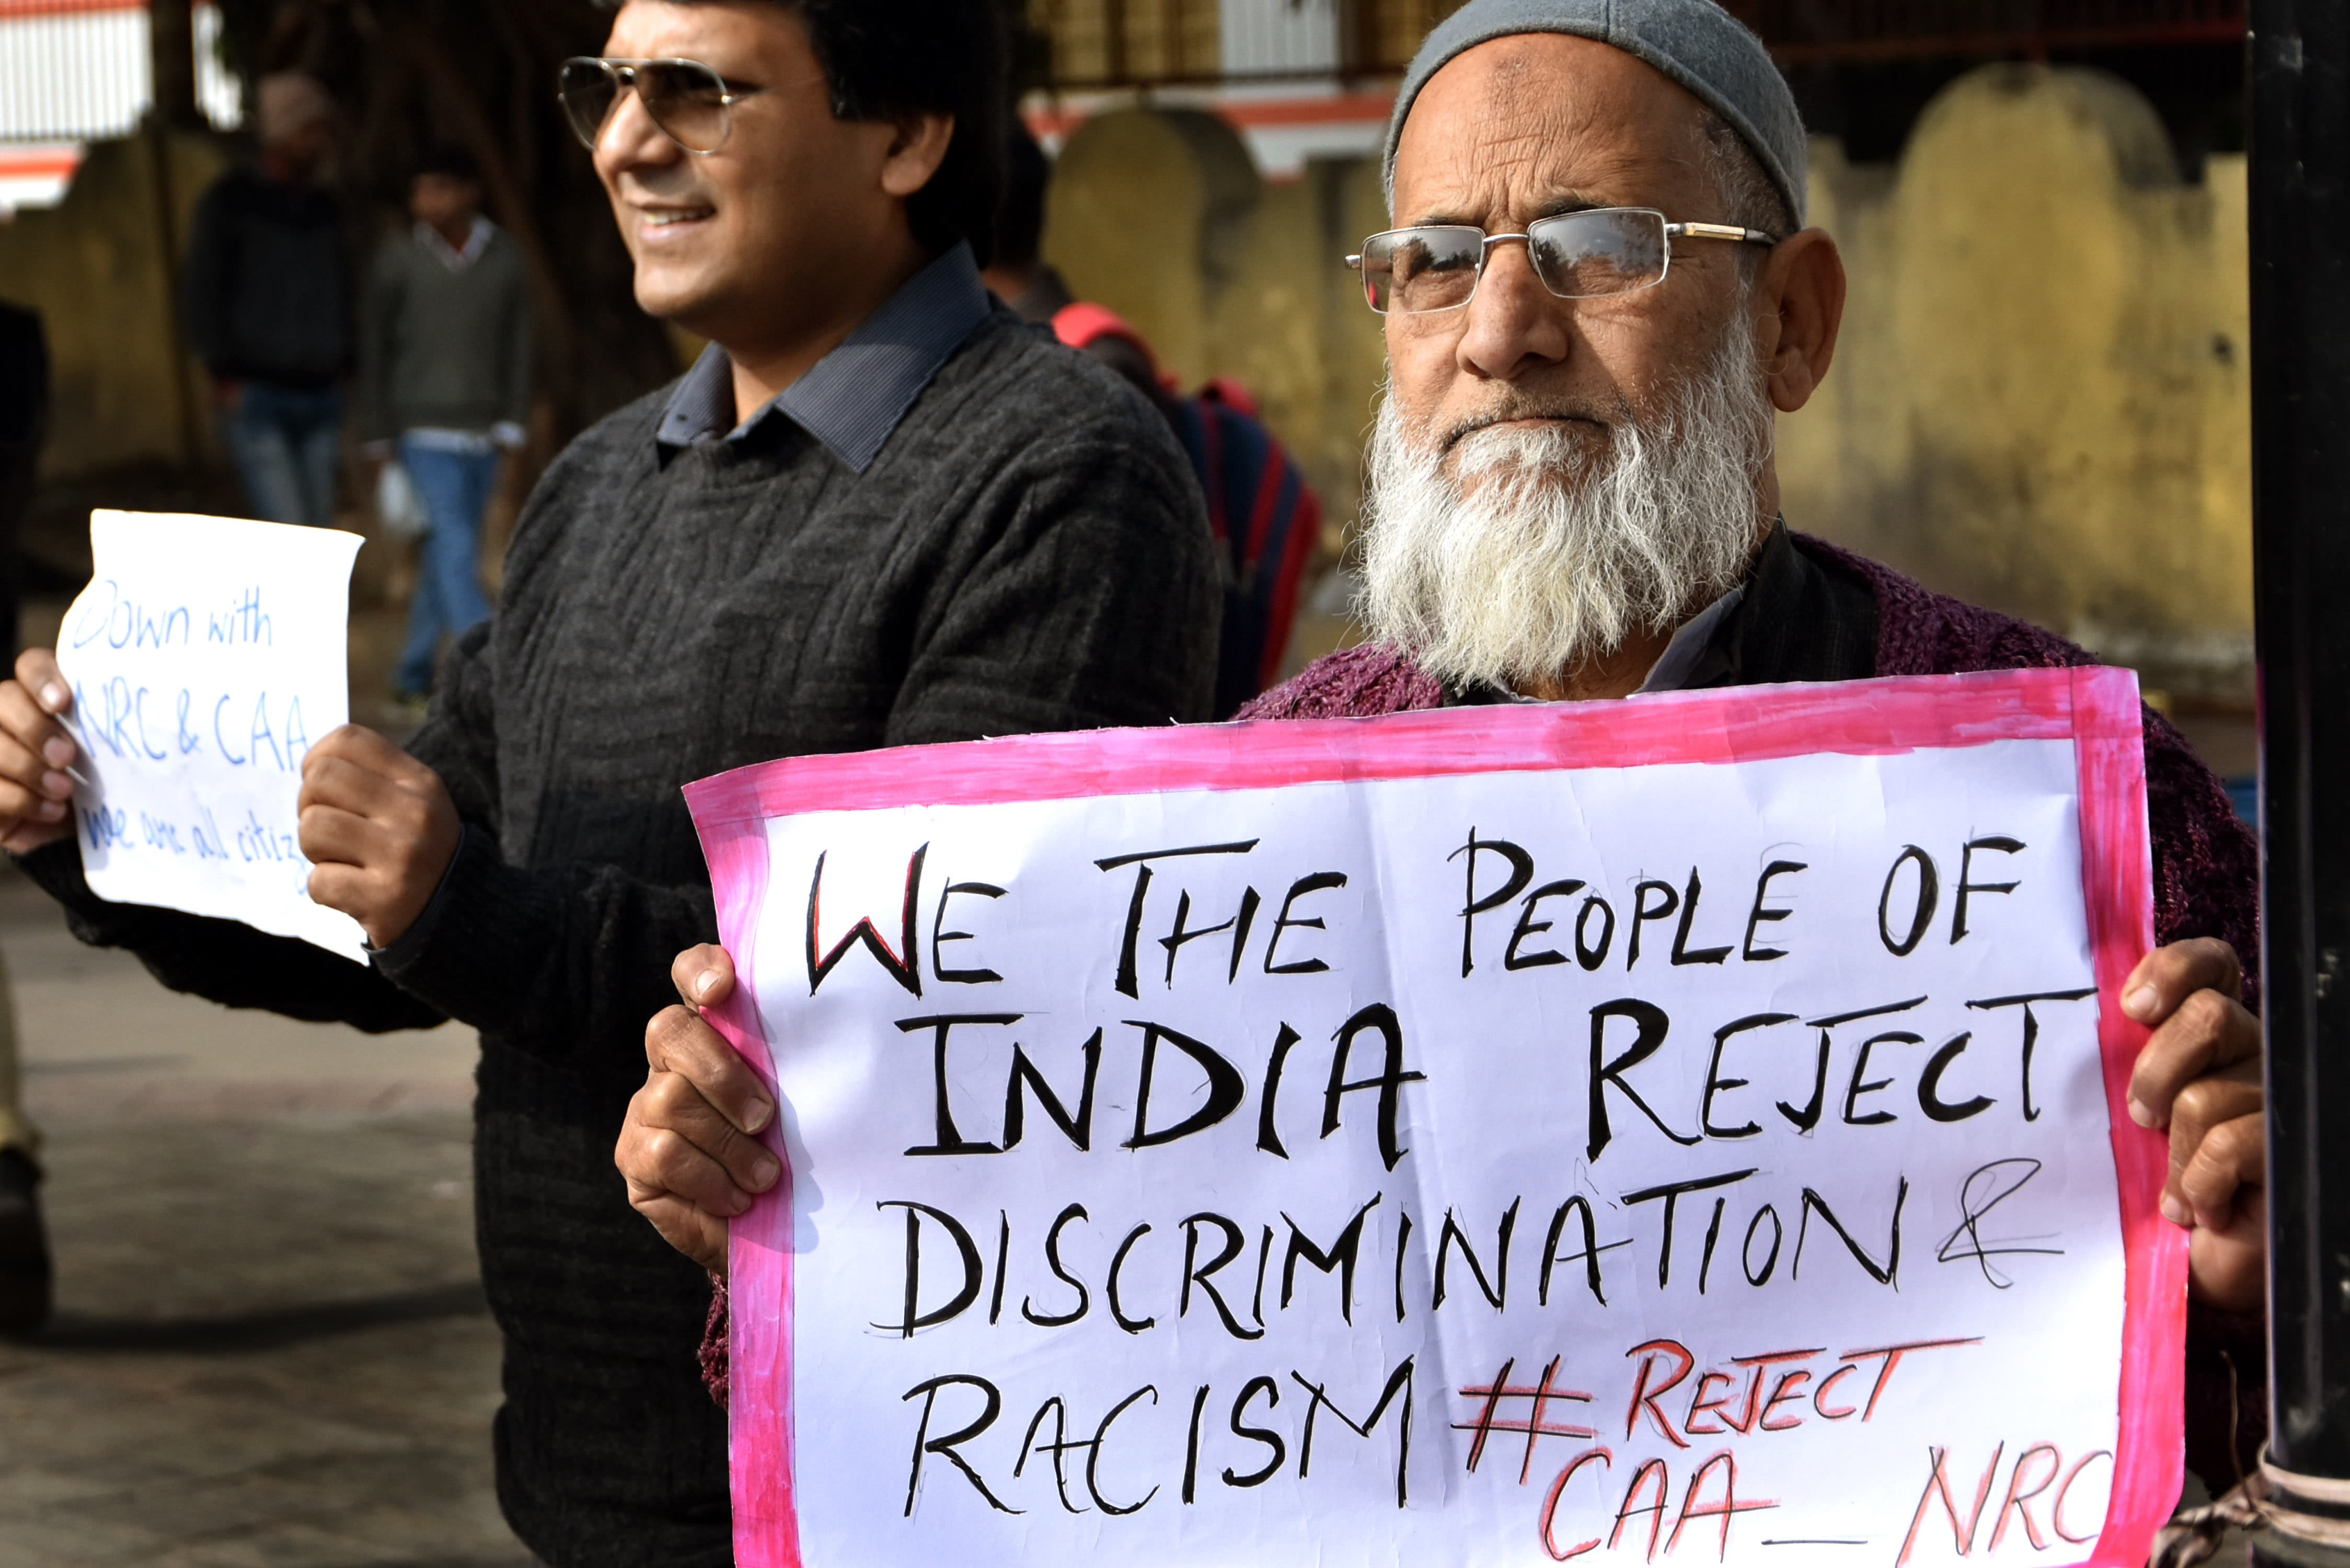 Down with
NRC & CAA
we are all
WE THE PEOPLE OF
INDIA REJECT
DISCRIMINATION &
RACISM #REJECT
CAA_NRC